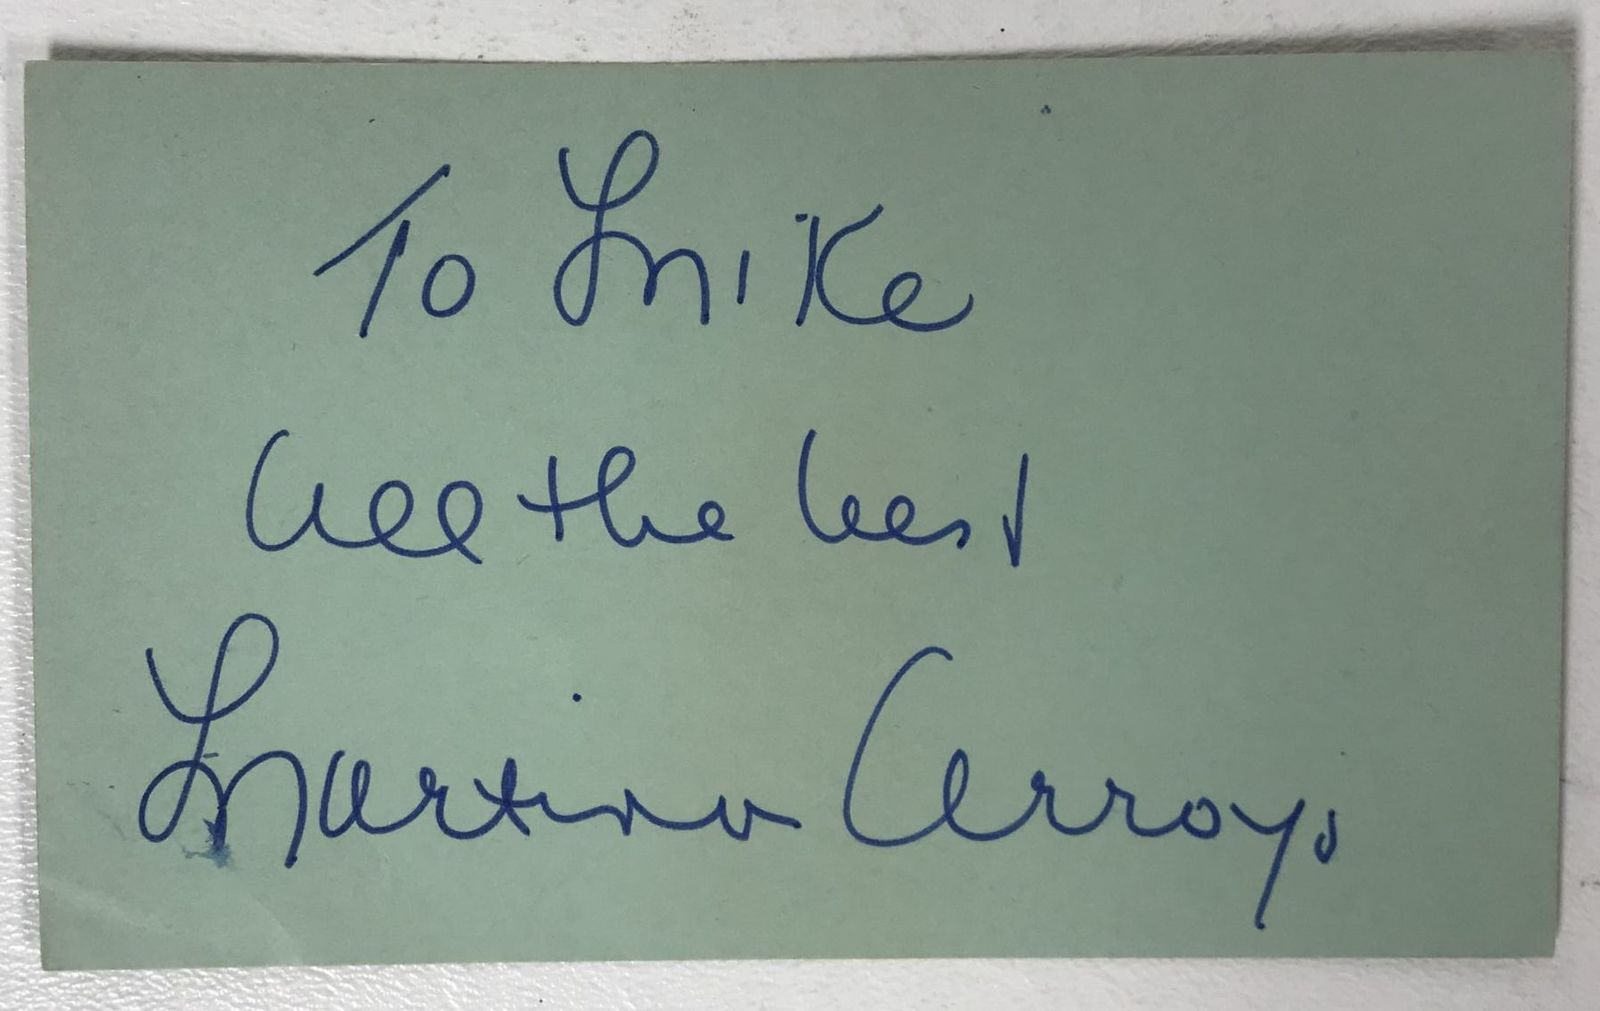 To Mike
All the best
Martina Arroyo